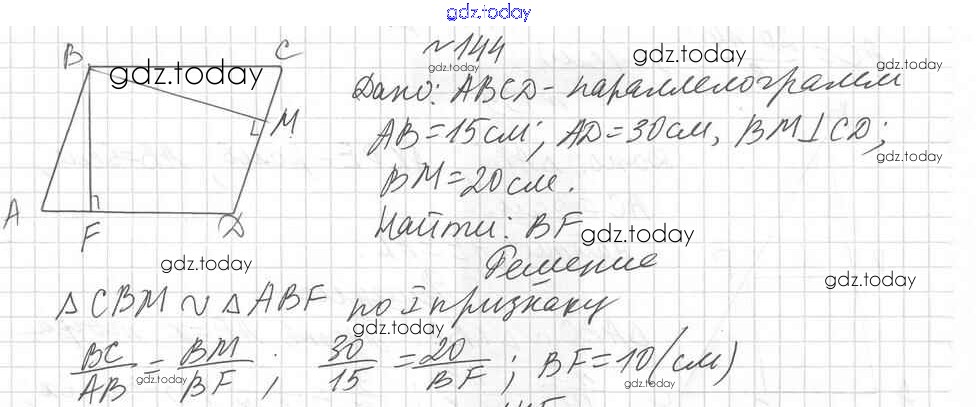 gdz.today
№144
gdz.today
gdz.today
B
C
gdz.today
Дано: ABCD - параллелограмм
AB = 15 см; AD = 30 см, BM ⊥ CD;
gdz.today
M
BM = 20 см.
A
F
D
Найти: BF
gdz.today
Решение
gdz.today
gdz.today
△CBM ∼ △ABF по I признаку
gdz.today
BC/AB = BM/BF; 30/15 = 20/BF; BF = 10 (см)
gdz.today
gdz.today